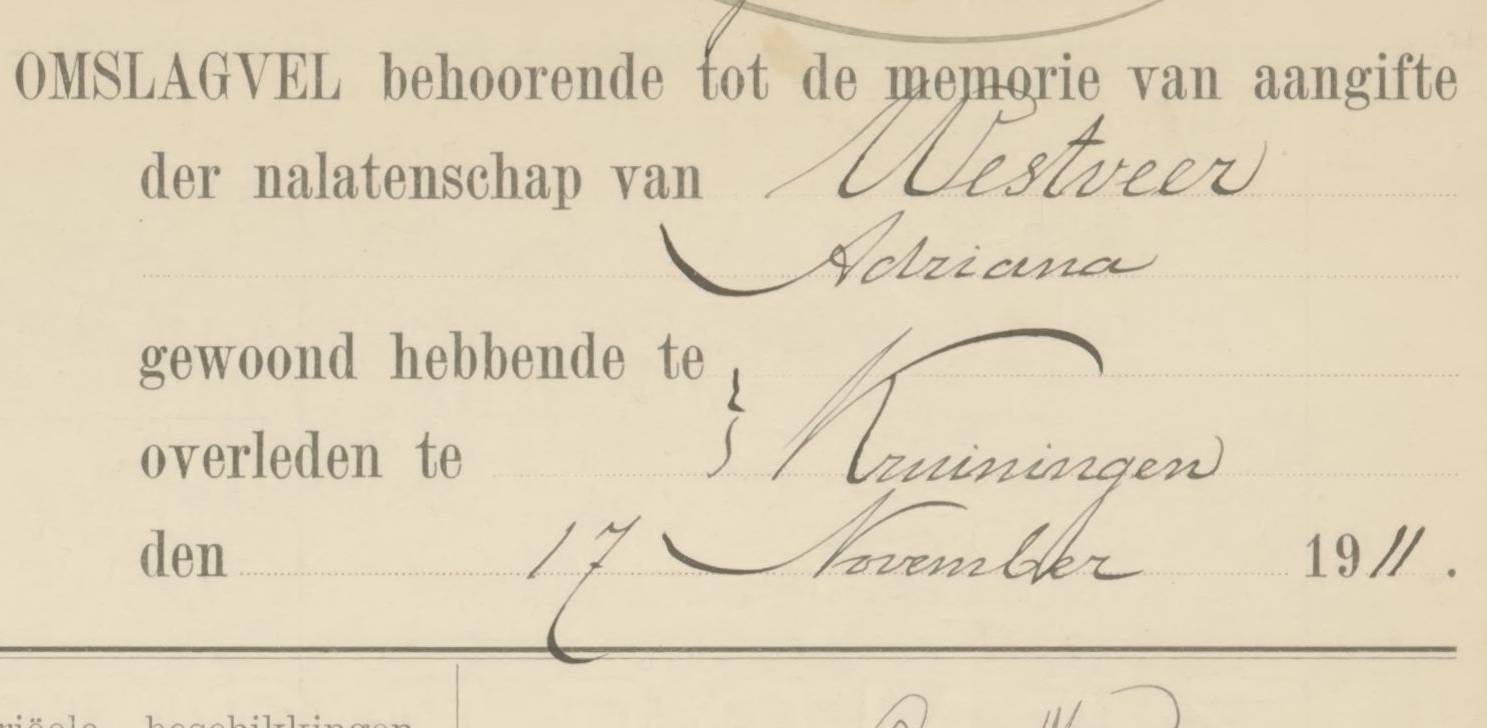 OMSLAGVEL behoorende tot de memorie van aangifte
der nalatenschap van Westveer
Adriana
gewoond hebbende te
overleden te } Kruiningen
den 17 November 1911.
beschikkingen